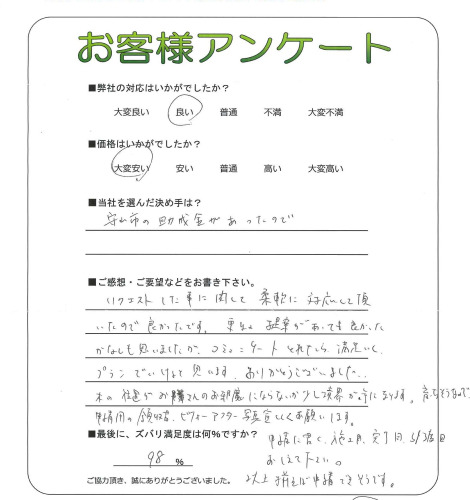 お客様アンケート
■弊社の対応はいかがでしたか？
大変良い 良い 普通 不満 大変不満
■価格はいかがでしたか？
大変安い 安い 普通 高い 大変高い
■当社を選んだ決め手は？
守山市の助成金があったので
■ご感想・ご要望などをお書き下さい。
リクエストした事に関して柔軟に対応して頂
いたので良かったです。 提案があっても良かった
かなとも思いましたが、コミュニケートとれたら、満足いく
プランでいけると思います。ありがとうございました。
木の
申請用の領収書、ビフォーアフター写真宜しくお願いします。
■最後に、ズバリ満足度は何％ですか？
98 %
申請に書く、着工日、完了日、
おしえて下さい。
ご協力頂き、誠にありがとうございました。
以上揃えば申請できそうです。